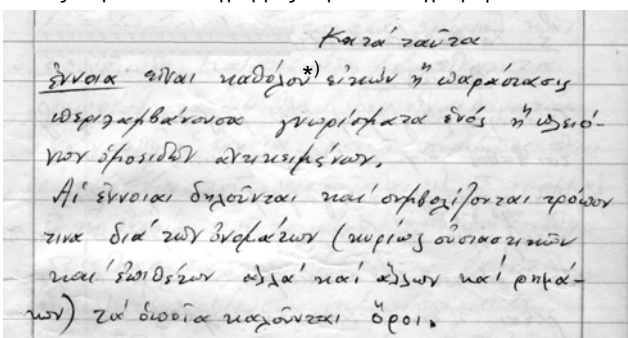 Κατά ταῦτα
ἔννοια εἶναι καθόλου*) εἰκών ἤ παράστασις
περιλαμβάνουσα γνωρίσματα ἑνός ἤ πλειό-
νων ὁμοειδῶν ἀντικειμένων.
Αἱ ἔννοιαι δηλοῦνται καί συμβολίζονται τρόπον
τινα διά τῶν ὀνομάτων (κυρίως οὐσιαστικῶν
καί ἐπιθέτων ἀλλά καί ἄλλων καί ρημά-
των) τά ὁποῖα καλοῦνται ὅροι.